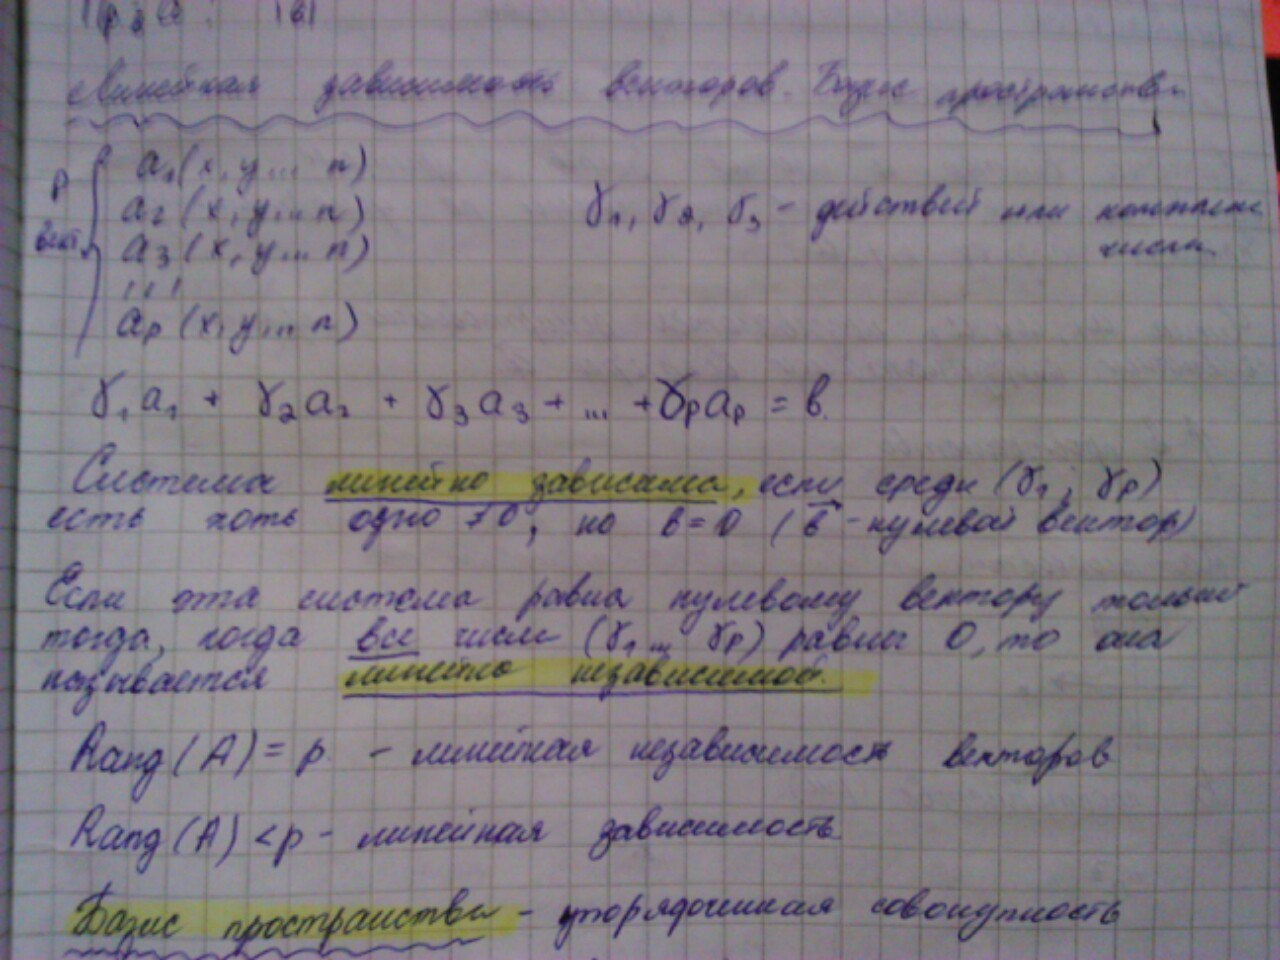 Линейная зависимость векторов. Базис пространства
a₁(x, y... n)
p
a₂(x, y... n)
γ₁, γ₂, γ₃ - действий или комплекс
вект.
a₃(x, y... n)
числа
...
aₚ(x, y... n)
γ₁a₁ + γ₂a₂ + γ₃a₃ + ... + γₚaₚ = в.
Система линейно зависима, если среди (γ₁, γₚ)
есть хоть одно ≠0, но в=0 (в - нулевой вектор)
Если эта система равна нулевому вектору только
тогда, когда все числа (γ₁ ... γₚ) равны 0, то она
называется линейно независимой.
Rang(A) = p - линейная независимость векторов
Rang(A) < p - линейная зависимость
Базис пространства - упорядоченная совокупность